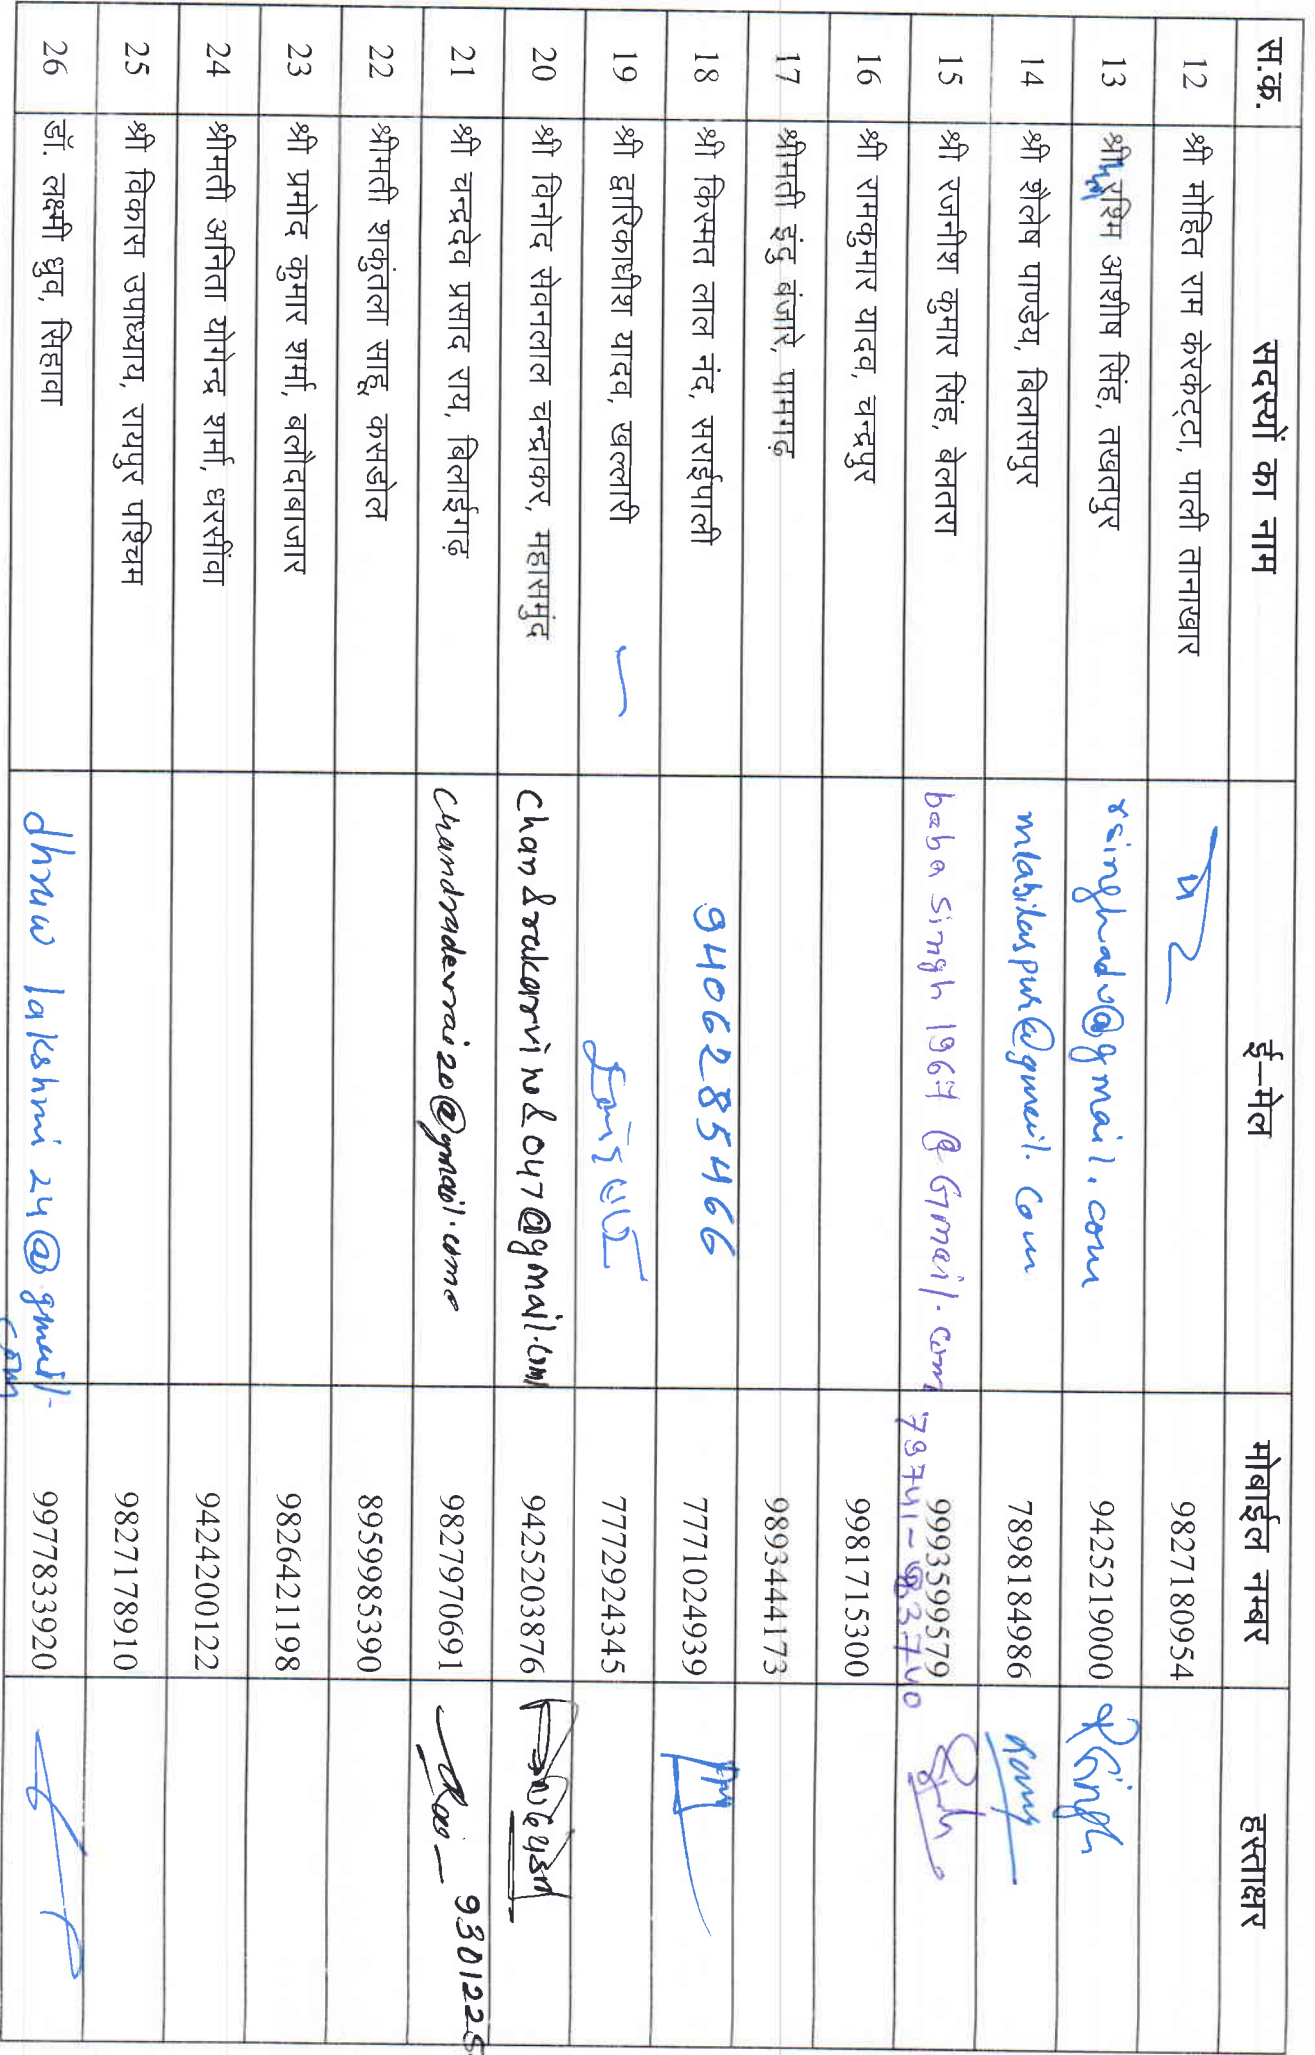 स.क्र. सदस्यों का नाम ई-मेल मोबाईल नम्बर हस्ताक्षर
12 श्री मोहित राम केरकेट्टा, पाली तानाखार 9827180954
13 श्री रश्मि आशीष सिंह, तखतपुर rsinghadv@gmail.com 9425219000 RSingh
14 श्री शैलेष पाण्डेय, बिलासपुर mlabilaspur@gmail.com 7898184986
15 श्री रजनीश कुमार सिंह, बेलतरा babasingh1967@Gmail.com 9993599579
16 श्री रामकुमार यादव, चन्द्रपुर 9981715300
17 श्रीमती इंदु बंजारे, पामगढ़ 9893444173
18 श्री किस्मत लाल नंद, सराईपाली 9406285466 7771024939
19 श्री द्वारिकाधीश यादव, खल्लारी 7772924345
20 श्री विनोद सेवनलाल चन्द्राकर, महासमुंद chandrakarvinod047@gmail.com 9425203876
21 श्री चन्द्रदेव प्रसाद राय, बिलाईगढ़ chandradevrai20@gmail.com 9827970691 Rai 9301225
22 श्रीमती शकुंतला साहू, कसडोल 8959985390
23 श्री प्रमोद कुमार शर्मा, बलौदाबाजार 9826421198
24 श्रीमती अनिता योगेन्द्र शर्मा, धरसींवा 9424200122
25 श्री विकास उपाध्याय, रायपुर पश्चिम 9827178910
26 डॉ. लक्ष्मी ध्रुव, सिहावा dhruw lakshmi 24@gmail.com 9977833920